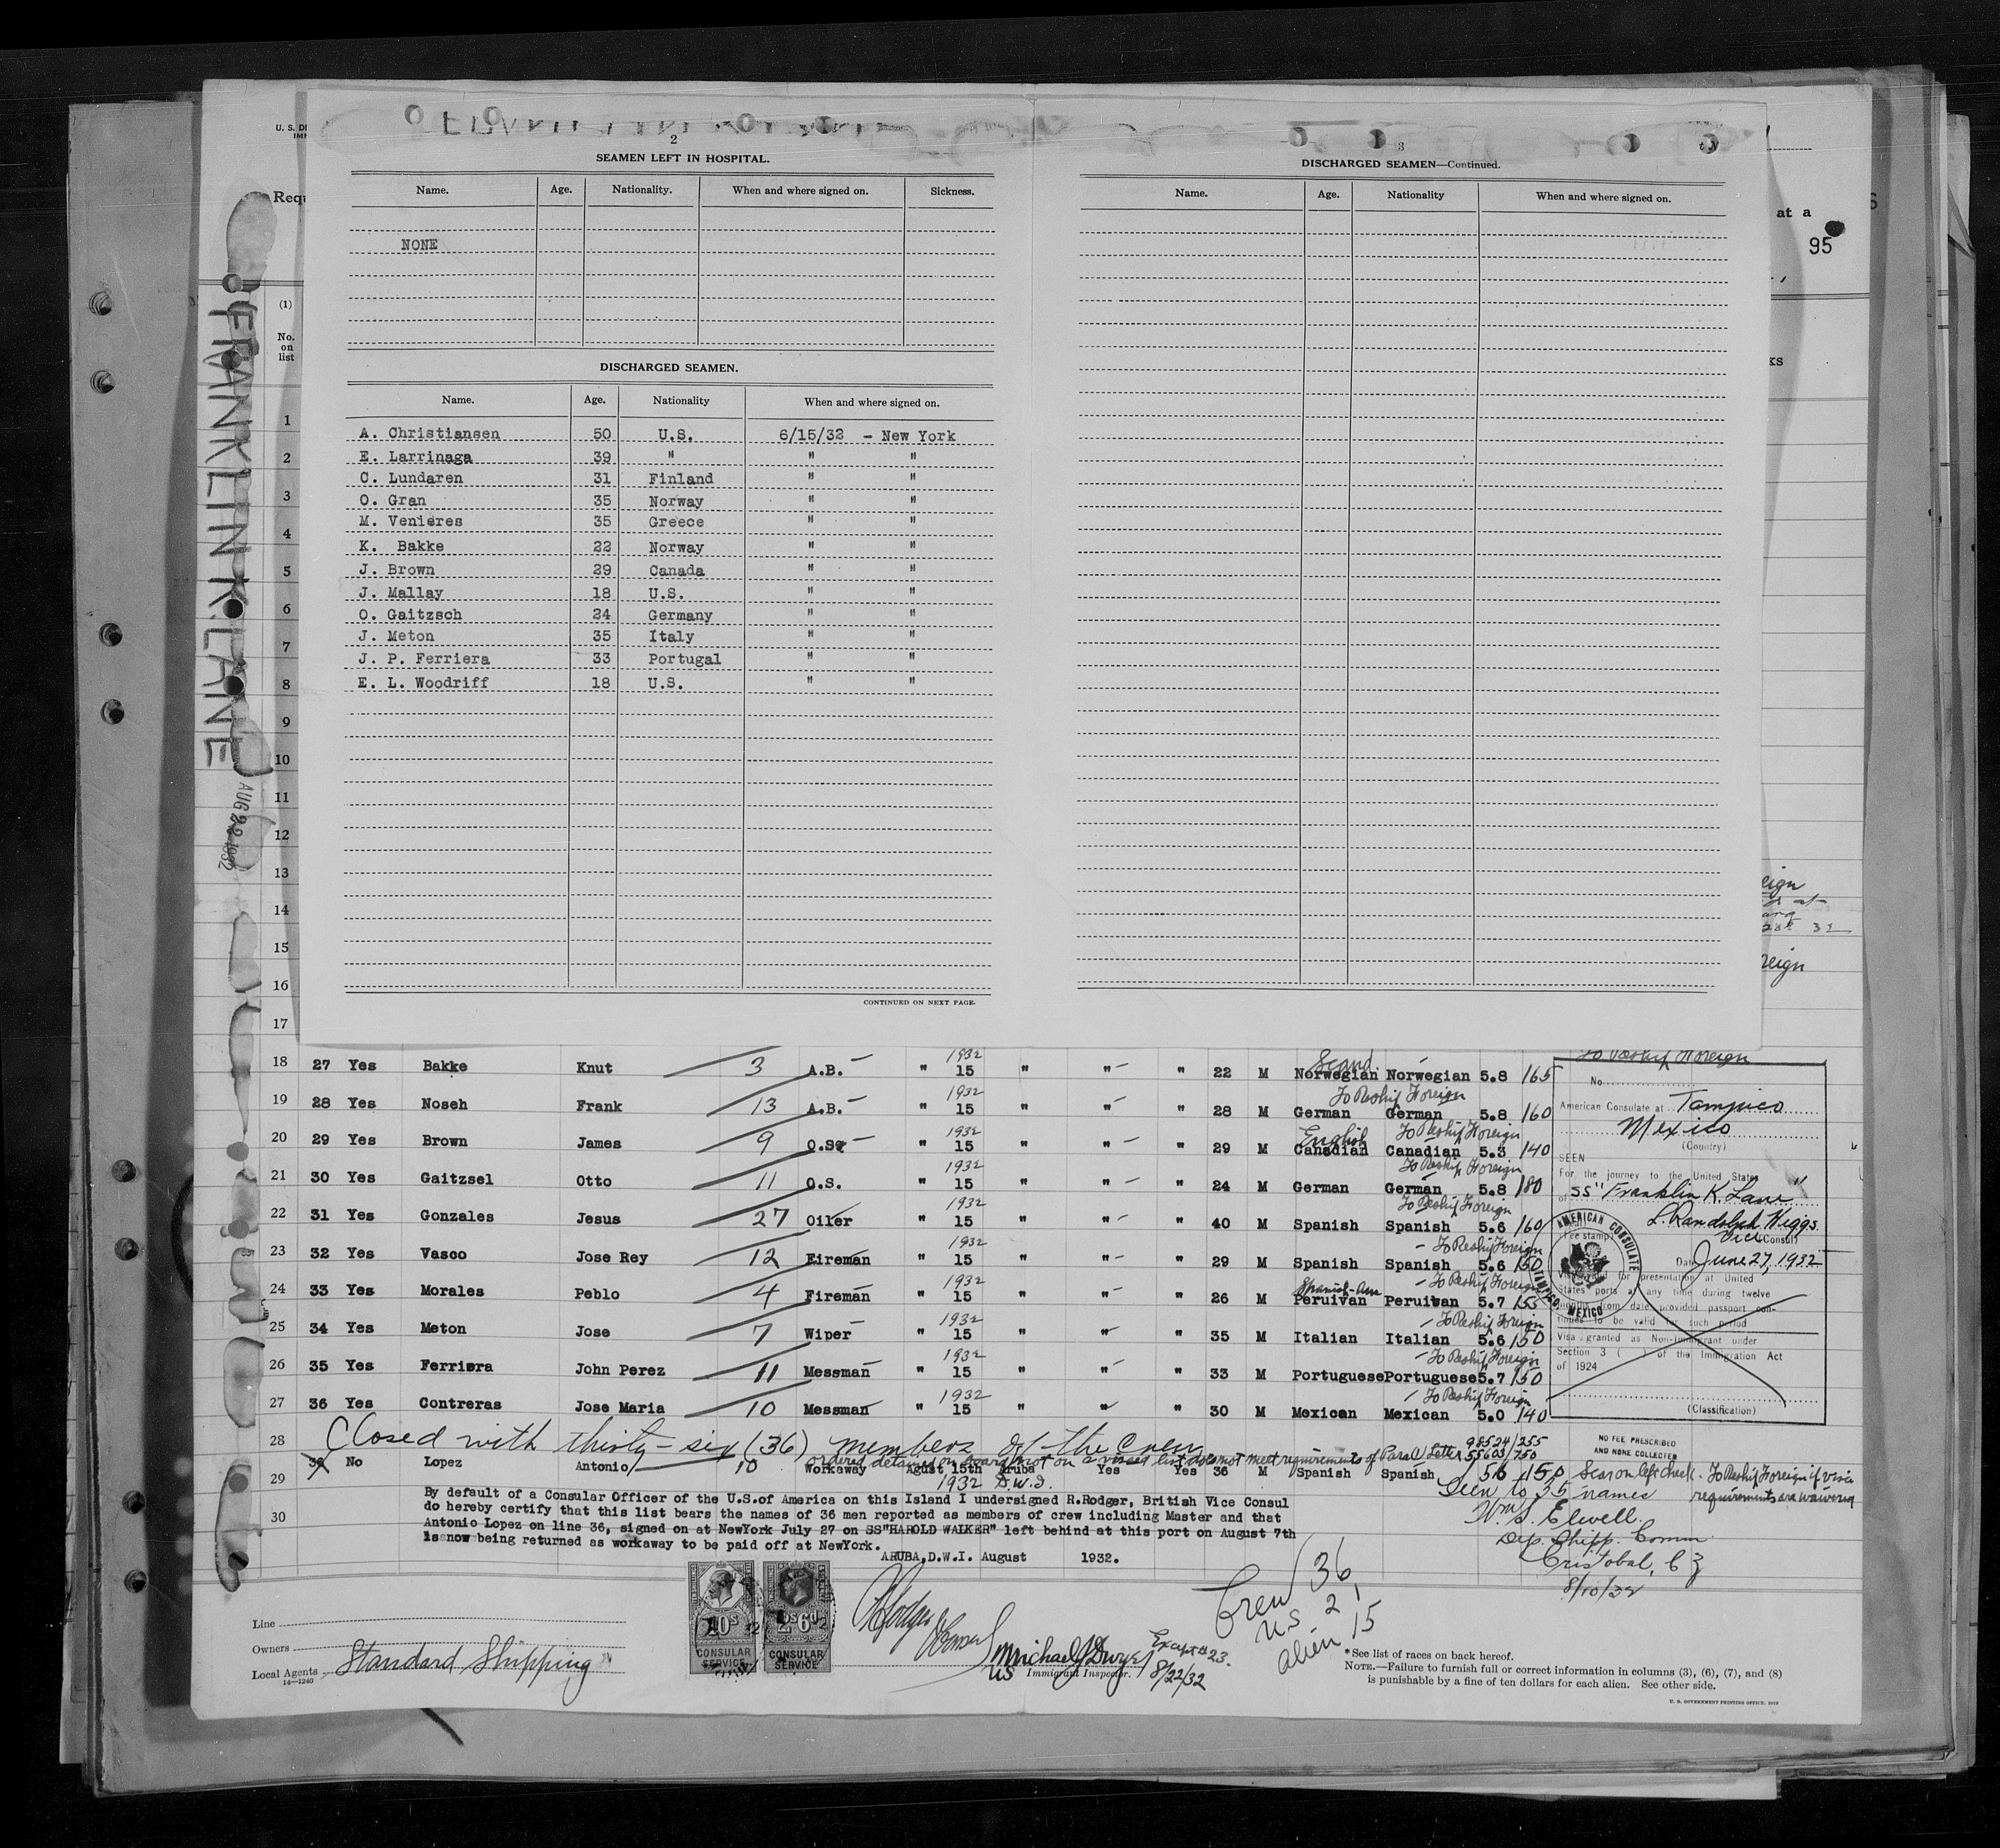 2
SEAMEN LEFT IN HOSPITAL.
Name. Age. Nationality. When and where signed on. Sickness.
NONE
DISCHARGED SEAMEN.
Name. Age. Nationality When and where signed on.
A. Christiansen 50 U.S. 6/15/32 - New York
E. Larrinaga 39 " " "
C. Lundaren 31 Finland " "
O. Gran 35 Norway " "
M. Venieres 35 Greece " "
K. Bakke 22 Norway " "
J. Brown 29 Canada " "
J. Mallay 18 U.S. " "
O. Gaitzsch 24 Germany " "
J. Meton 35 Italy " "
J. P. Ferriera 33 Portugal " "
E. L. Woodriff 18 U.S. " "
CONTINUED ON NEXT PAGE.
3
DISCHARGED SEAMEN—Continued.
Name. Age. Nationality When and where signed on.
at a
95
FRANKLIN K. LANE
AUG 22 1932
(1)
No.
on
list
1
2
3
4
5
6
7
8
9
10
11
12
13
14
15
16
17
18 27 Yes Bakke Knut 3 A.B. " 1932 15 " " " 22 M Scand. Norwegian Norwegian 5.8 165
19 28 Yes Noseh Frank 13 A.B. " 1932 15 " " " 28 M German German 5.8 160 To Reship Foreign
20 29 Yes Brown James 9 O.S. " 1932 15 " " " 29 M English Canadian Canadian 5.3 140 To Reship Foreign
21 30 Yes Gaitzsel Otto 11 O.S. " 1932 15 " " " 24 M German German 5.8 180 To Reship Foreign
22 31 Yes Gonzales Jesus 27 Oiler " 1932 15 " " " 40 M Spanish Spanish 5.6 160 To Reship Foreign
23 32 Yes Vasco Jose Rey 12 Fireman " 1932 15 " " " 29 M Spanish Spanish 5.6 150 To Reship Foreign
24 33 Yes Morales Peblo 4 Fireman " 1932 15 " " " 26 M Spanish-Am Peruivan Peruivan 5.7 155 To Reship Foreign
25 34 Yes Meton Jose 7 Wiper " 1932 15 " " " 35 M Italian Italian 5.6 150 To Reship Foreign
26 35 Yes Ferriera John Perez 11 Messman " 1932 15 " " " 33 M Portuguese Portuguese 5.7 150 To Reship Foreign
27 36 Yes Contreras Jose Maria 10 Messman " 1932 15 " " " 30 M Mexican Mexican 5.0 140 To Reship Foreign
28 Closed with thirty-six (36) members of the crew
ordered detained on board not on a visaed list does not meet requirements of Para (1) Letter 98524/255 55603/750
29 No Lopez Antonio 10 Workaway Agust 15th 1932 Aruba D.W.I. Yes Yes 36 M Spanish Spanish 5.6 150 Scar on left cheek. To Reship Foreign if visa requirements are waived
30
By default of a Consular Officer of the U.S.of America on this Island I undersigned R.Rodger, British Vice Consul
do hereby certify that this list bears the names of 36 men reported as members of crew including Master and that
Antonio Lopez on line 36, signed on at NewYork July 27 on SS"HAROLD WALKER" left behind at this port on August 7th
is now being returned as workaway to be paid off at NewYork.
ARUBA, D.W.I. August 1932.
To Reship Foreign
No.
American Consulate at Tampico
Mexico
(Country)
SEEN
For the journey to the United States
of SS "Franklin K. Lane"
L. Randolph Higgs
Vice Consul
(Fee stamp)
Date June 27, 1932
Visa valid for presentation at United
States ports at any time during twelve
months from date provided passport con-
tinues to be valid for such period
Visa granted as Non-Immigrant under
Section 3 ( ) of the Immigration Act
of 1924
(Classification)
AMERICAN CONSULATE
TAMPICO, MEXICO
NO FEE PRESCRIBED
AND NONE COLLECTED
Seen to 35 names
Wm S. Elwell
Dep. Shipp. Comm
Cristobal, C Z
8/10/32
Line
Owners
Local Agents Standard Shipping
14—1240
10s
CONSULAR
SERVICE
2s 6d
CONSULAR
SERVICE
Michael J Dwyer
US Immigrant Inspector.
Except # 23.
8/22/32
Crew 36,
US 21
alien 15
*See list of races on back hereof.
NOTE.—Failure to furnish full or correct information in columns (3), (6), (7), and (8)
is punishable by a fine of ten dollars for each alien. See other side.
U. S. GOVERNMENT PRINTING OFFICE. 1919